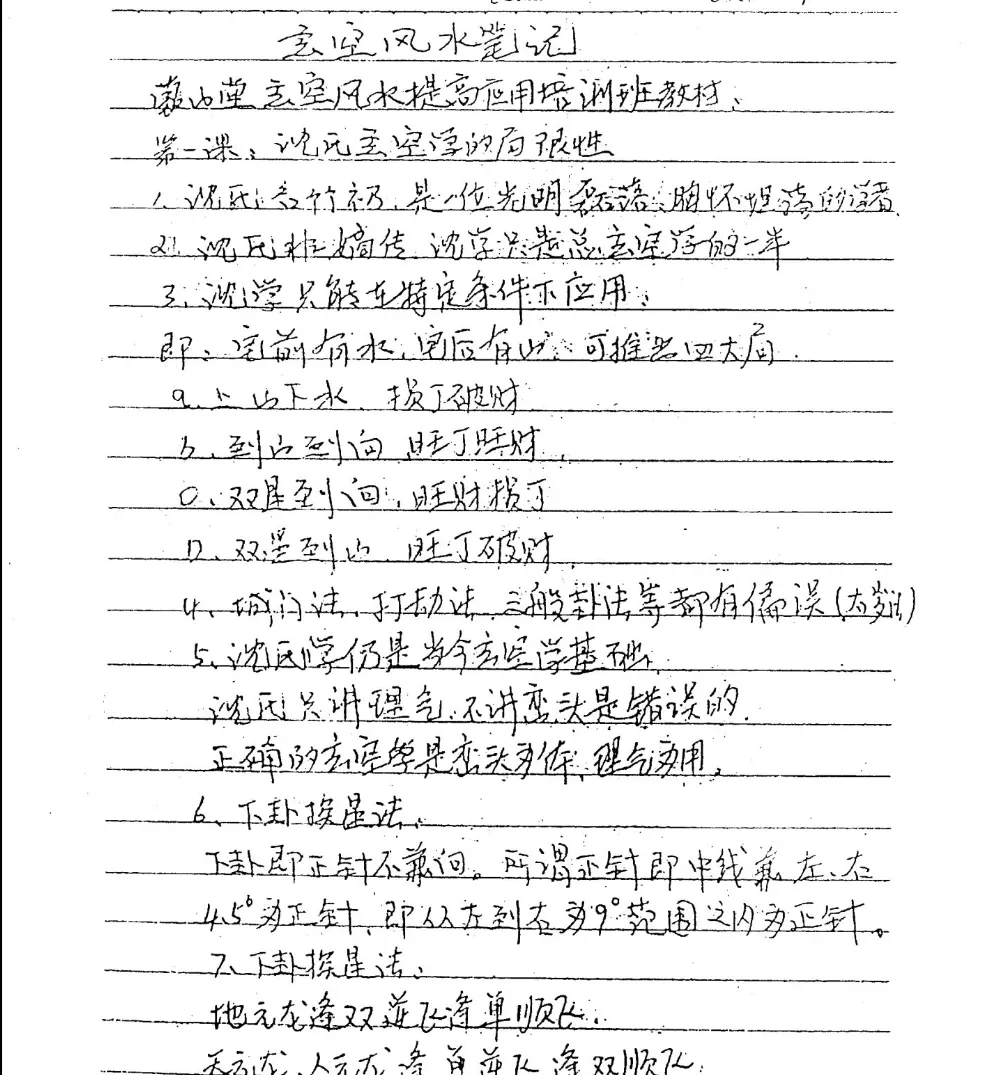 玄空风水笔记
山堂玄空风水提高应用培训班教材:
第一课:沈氏玄空学的局限性
1、沈氏:名竹礽,是一位光明磊落、胸怀坦荡的学者
2、沈氏非嫡传,沈学只是总玄空学的一半
3、沈学只能在特定条件下应用:
即:宅前有水,宅后有山,可推出四大局.
a、上山下水,损丁破财
b、到山到向,旺丁旺财,
C、双星到向,旺财损丁
D、双星到山,旺丁破财
4、城门法、打劫法、三般卦法等都有偏误(
5、沈氏学仍是当今玄空学基础
沈氏只讲理气,不讲峦头是错误的.
正确的玄空学是峦头为体,理气为用,
6、下卦挨星法:
下卦即正针不兼向。所谓正针即中线兼左、右
4.5°为正针,即从左到右为9°范围之内为正针。
7、下卦挨星法:
地元龙逢双逆飞逢单顺飞.
天元龙、人元龙逢单逆飞逢双顺飞.